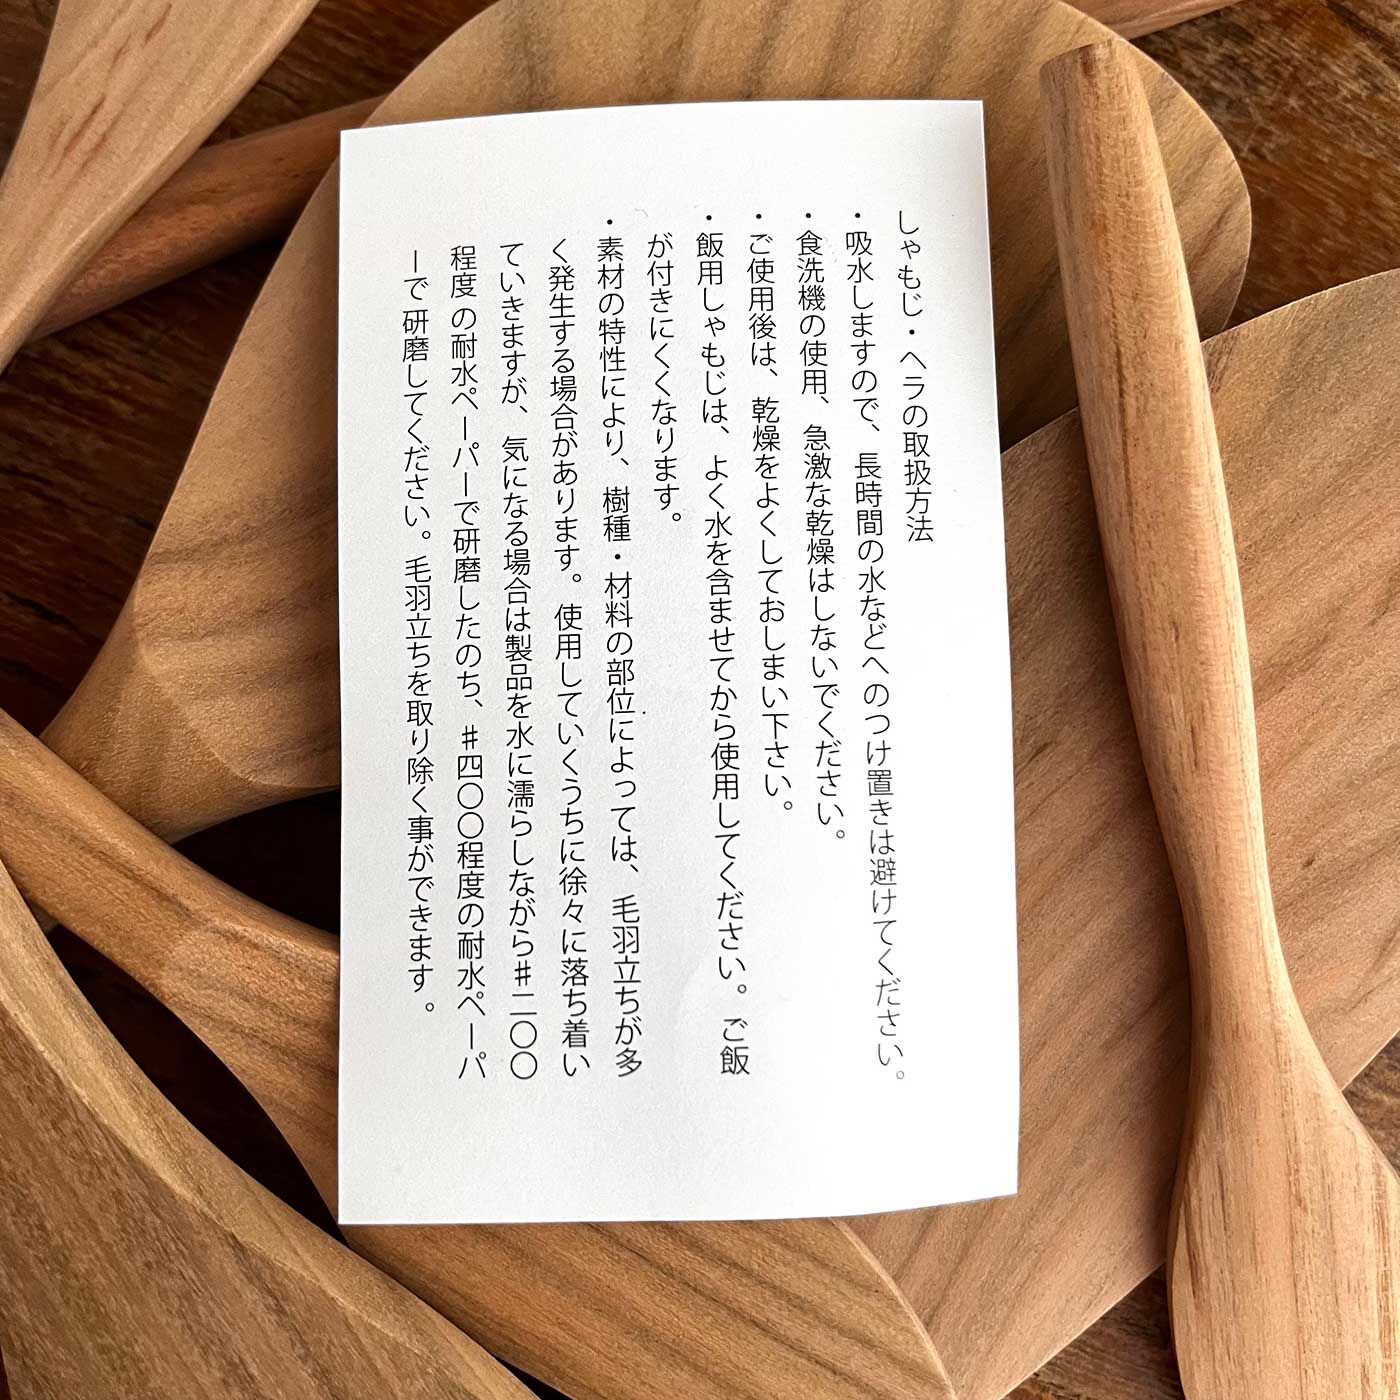 しゃもじ・ヘラの取扱方法
・吸水しますので、長時間の水などへのつけ置きは避けてください。
・食洗機の使用、急激な乾燥はしないでください。
・ご使用後は、乾燥をよくしておしまい下さい。
・飯用しゃもじは、よく水を含ませてから使用してください。ご飯
が付きにくくなります。
・素材の特性により、樹種・材料の部位によっては、毛羽立ちが多
く発生する場合があります。使用していくうちに徐々に落ち着い
ていきますが、気になる場合は製品を水に濡らしながら♯二〇〇
程度の耐水ペーパーで研磨したのち、♯四〇〇程度の耐水ペーパ
ーで研磨してください。毛羽立ちを取り除く事ができます。